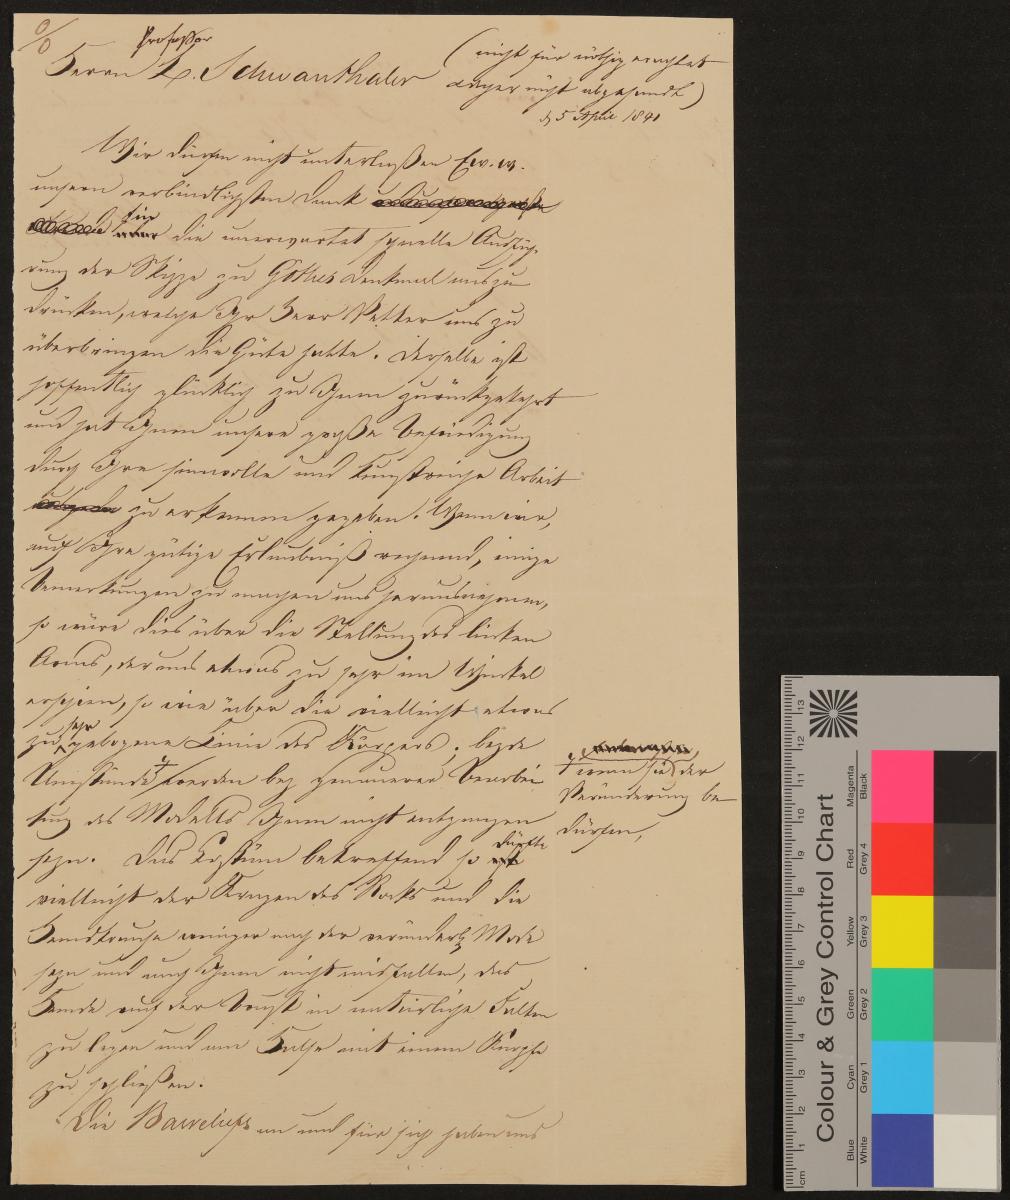 Professor
Herrn L. Schwanthaler
(nicht für nöthig erachtet
daher nicht abgesandt)
5 April 1841
Wir dürfen nicht unterlaßen Ew. w.
unsern verbindlichsten Dank
für
die unerwartet schnelle Ausfüh-
rung der Skizze zu Göthes Denkmal auszu
drücken, welche Ihr Herr Vetter uns zu
überbringen die Güte hatte. Derselbe ist
hoffentlich glücklich zu Ihnen zurückgekehrt
und hat Ihnen unsere große Befriedigung
durch Ihre sinnvolle und kunstreiche Arbeit
zu erkennen gegeben. Wenn wir,
auf Ihre gütige Erlaubniß rechnend, einige
Bemerkungen zu machen uns herausnehmen,
so wäre dies über die Stellung des linken
Arms, der uns etwas zu sehr im Winkel
erschien, so wie über die vielleicht etwas
sehr
zu gebogene Linie des Körpers; beyde
Umstände werden bey genauerer Bearbei
tung des Modells Ihnen nicht entgangen
seyn. Das Costüm betreffend so
dürfte
vielleicht der Kragen des Rocks und die
Hemdkrause weniger nach der veränderl. Mode
seyn und auch Ihnen nicht misfallen, das
Hemde auf der Brust in natürliche Falten
zu legen und am Halse mit einem Knopfe
zu schließen.
Die Basreliefs an und für sich haben uns
wenn sie der
Veränderung be
dürfen,
Colour & Grey Control Chart
Blue Cyan Green Yellow Red Magenta
White Grey 1 Grey 2 Grey 3 Grey 4 Black
cm 1 2 3 4 5 6 7 8 9 10 11 12 13